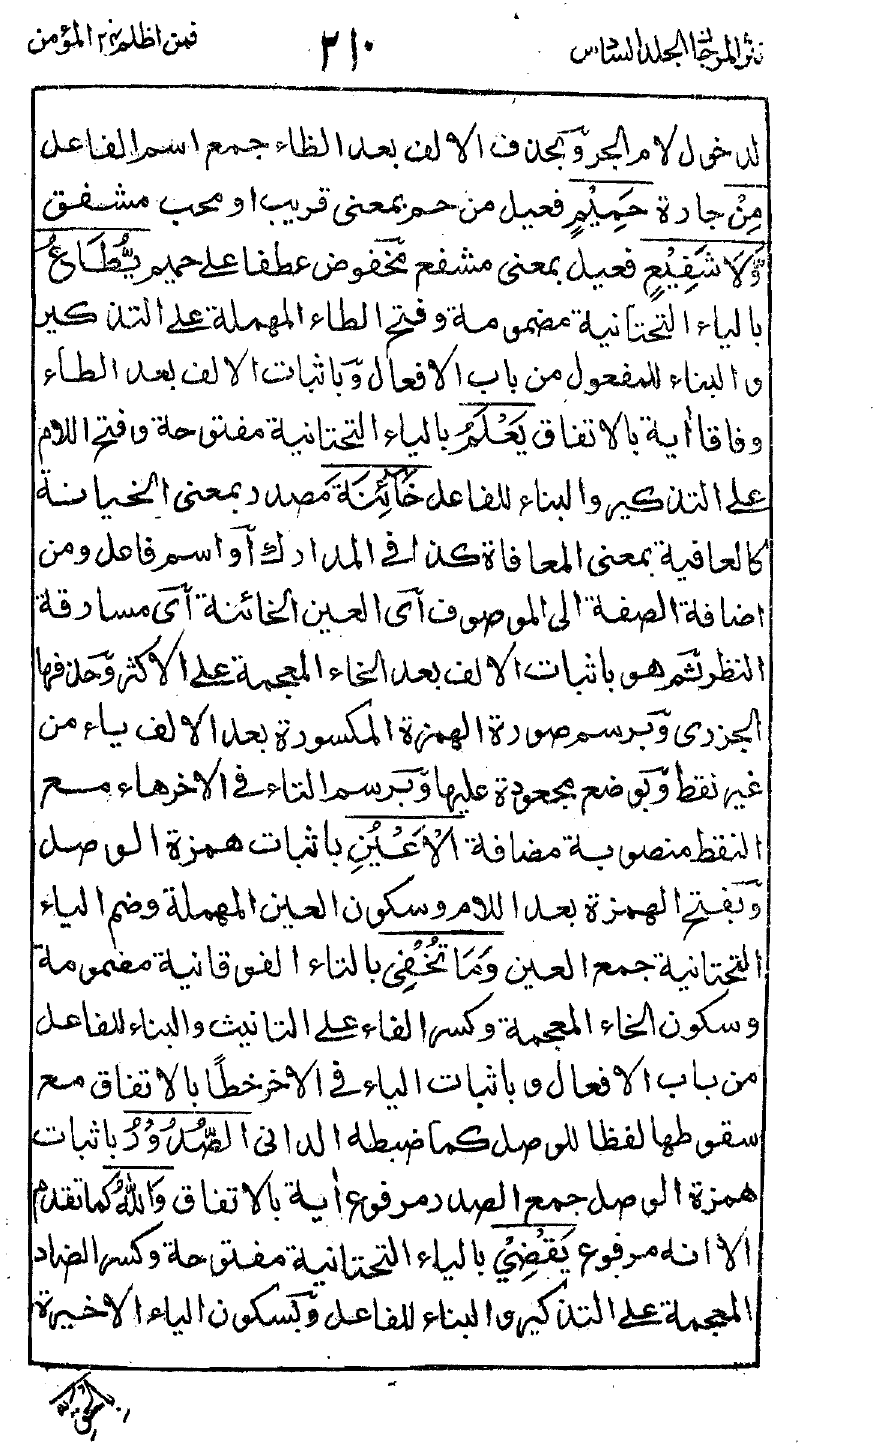 نثر المرجان الجلد السادس ٣١٠ فمن اظلم ٢٤ المؤمن
لدخول لام الجر وّبحذف الالف بعد الظاء جمع اسم الفاعل
مِنْ جارة حَمِيْمٍ فعيل من حم بمعنى قريب او محب مشفق
وَّلَا شَفِيْعٍ فعيل بمعنى مشفع مخفوض عطفا على حميم يُّطَاعُ
بالياء التحتانية مضمومة وفتح الطاء المهملة على التذكير
والبناء للمفعول من باب الافعال وّباثبات الالف بعد الطاء
وفاقا أية بالاتفاق يَعْلَمُ بالياء التحتانية مفتوحة وفتح اللام
على التذكير والبناء للفاعل خَائِنَةَ مصدر بمعنى الخيانة
كالعافية بمعنى المعافاة كذا في المدارك أو اسم فاعل ومن
اضافة الصفة الى الموصوف أى العين الخائنة أى مسارقة
النظر ثم هو باثبات الالف بعد الخاء المعجمة على الاكثر وحذفها
الجزرى وّبرسم صورة الهمزة المكسورة بعد الالف ياء من
غير نقط وّبوضع مجعودة عليها وّبرسم التاء في الاخر هاء مع
النقط منصوبة مضافة الْاَعْيُنِ باثبات همزة الوصل
وّبفتح الهمزة بعد اللام وسكون العين المهملة وضم الياء
التحتانية جمع العين وَمَا تُخْفِى بالتاء الفوقانية مضمومة
وسكون الخاء المعجمة وكسر الفاء على التانيث والبناء للفاعل
من باب الافعال وباثبات الياء في الاخر خطًا بالاتفاق مع
سقوطها لفظا للوصل كما ضبطه الدانى الصُّدُوْرُ باثبات
همزة الوصل جمع الصدر مرفوع أية بالاتفاق وَاللّٰهُ كما تقدم
الا انه مرفوع يَقْضِيْ بالياء التحتانية مفتوحة وكسر الضاد
المعجمة على التذكير والبناء للفاعل وّبسكون الياء الاخيرة
بالحق